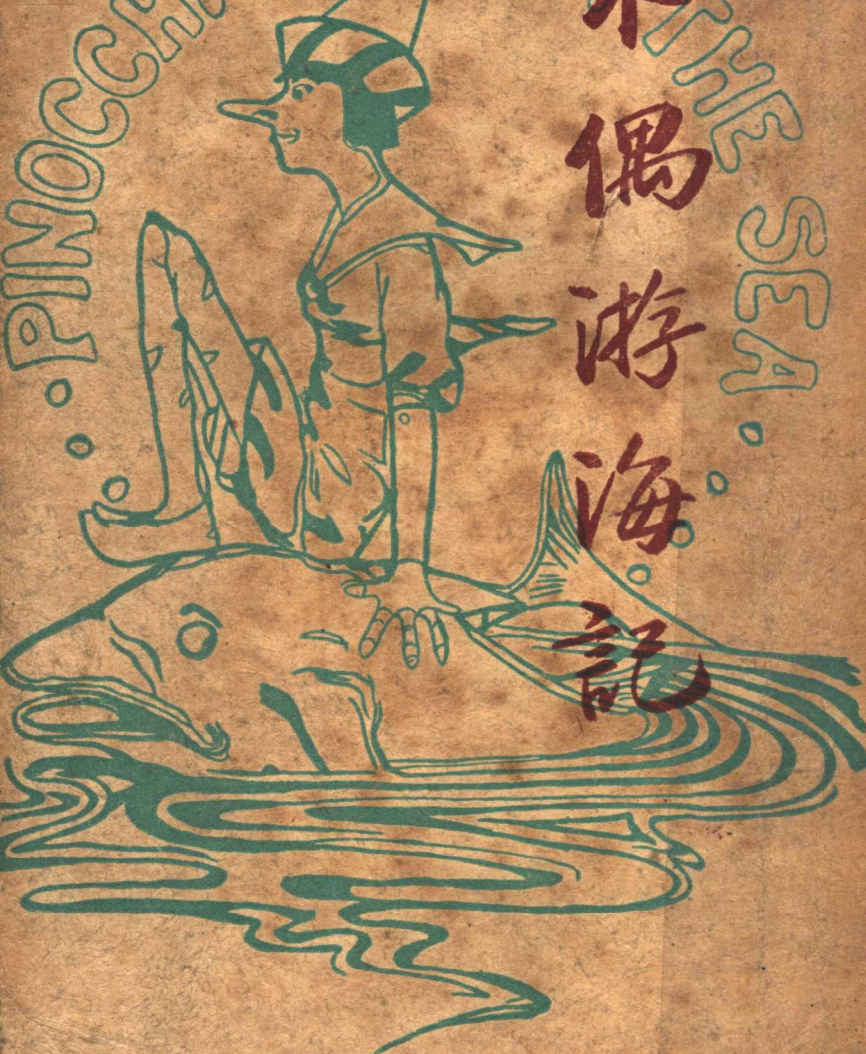 PINOCCH
THE SEA
木偶游海記